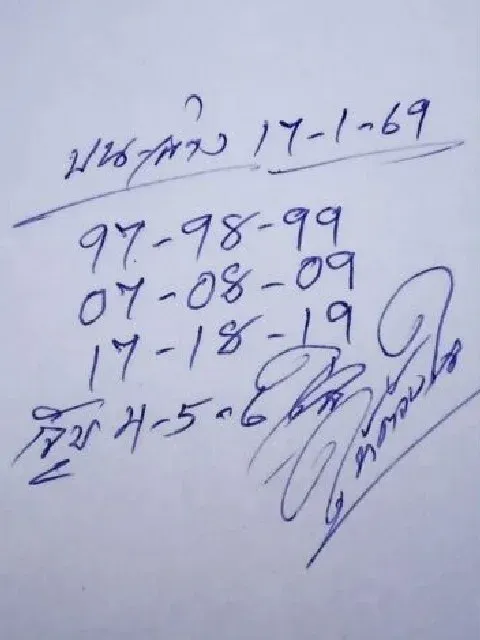 บน-ล่าง 17-1-69
97-98-99
07-08-09
17-18-19
4-5-6